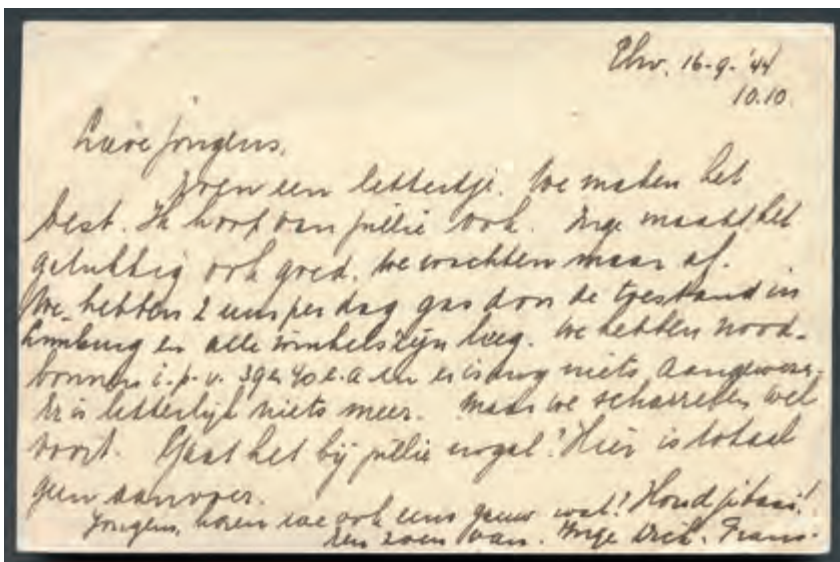 Ehv. 16-9-'44
10.10.
Lieve jongens,
Even een lettertje. We maken het
best. Ik hoop van jullie ook. Inge maakt het
gelukkig ook goed. We wachten maar af.
We hebben 2 uur per dag gas door de toestand in
Limburg en alle winkels zijn leeg. We hebben nood-
bonnen i.p.v. 39 en 40 e.a. en er is nog niets aangewezen.
Er is letterlijk niets meer. Maar we scharrelen wel
voort. Gaat het bij jullie nogal? Hier is totaal
geen aanvoer.
Jongens, horen we ook eens gauw wat? Houd je taai!
Een zoen van. Inge Dick. Frans.